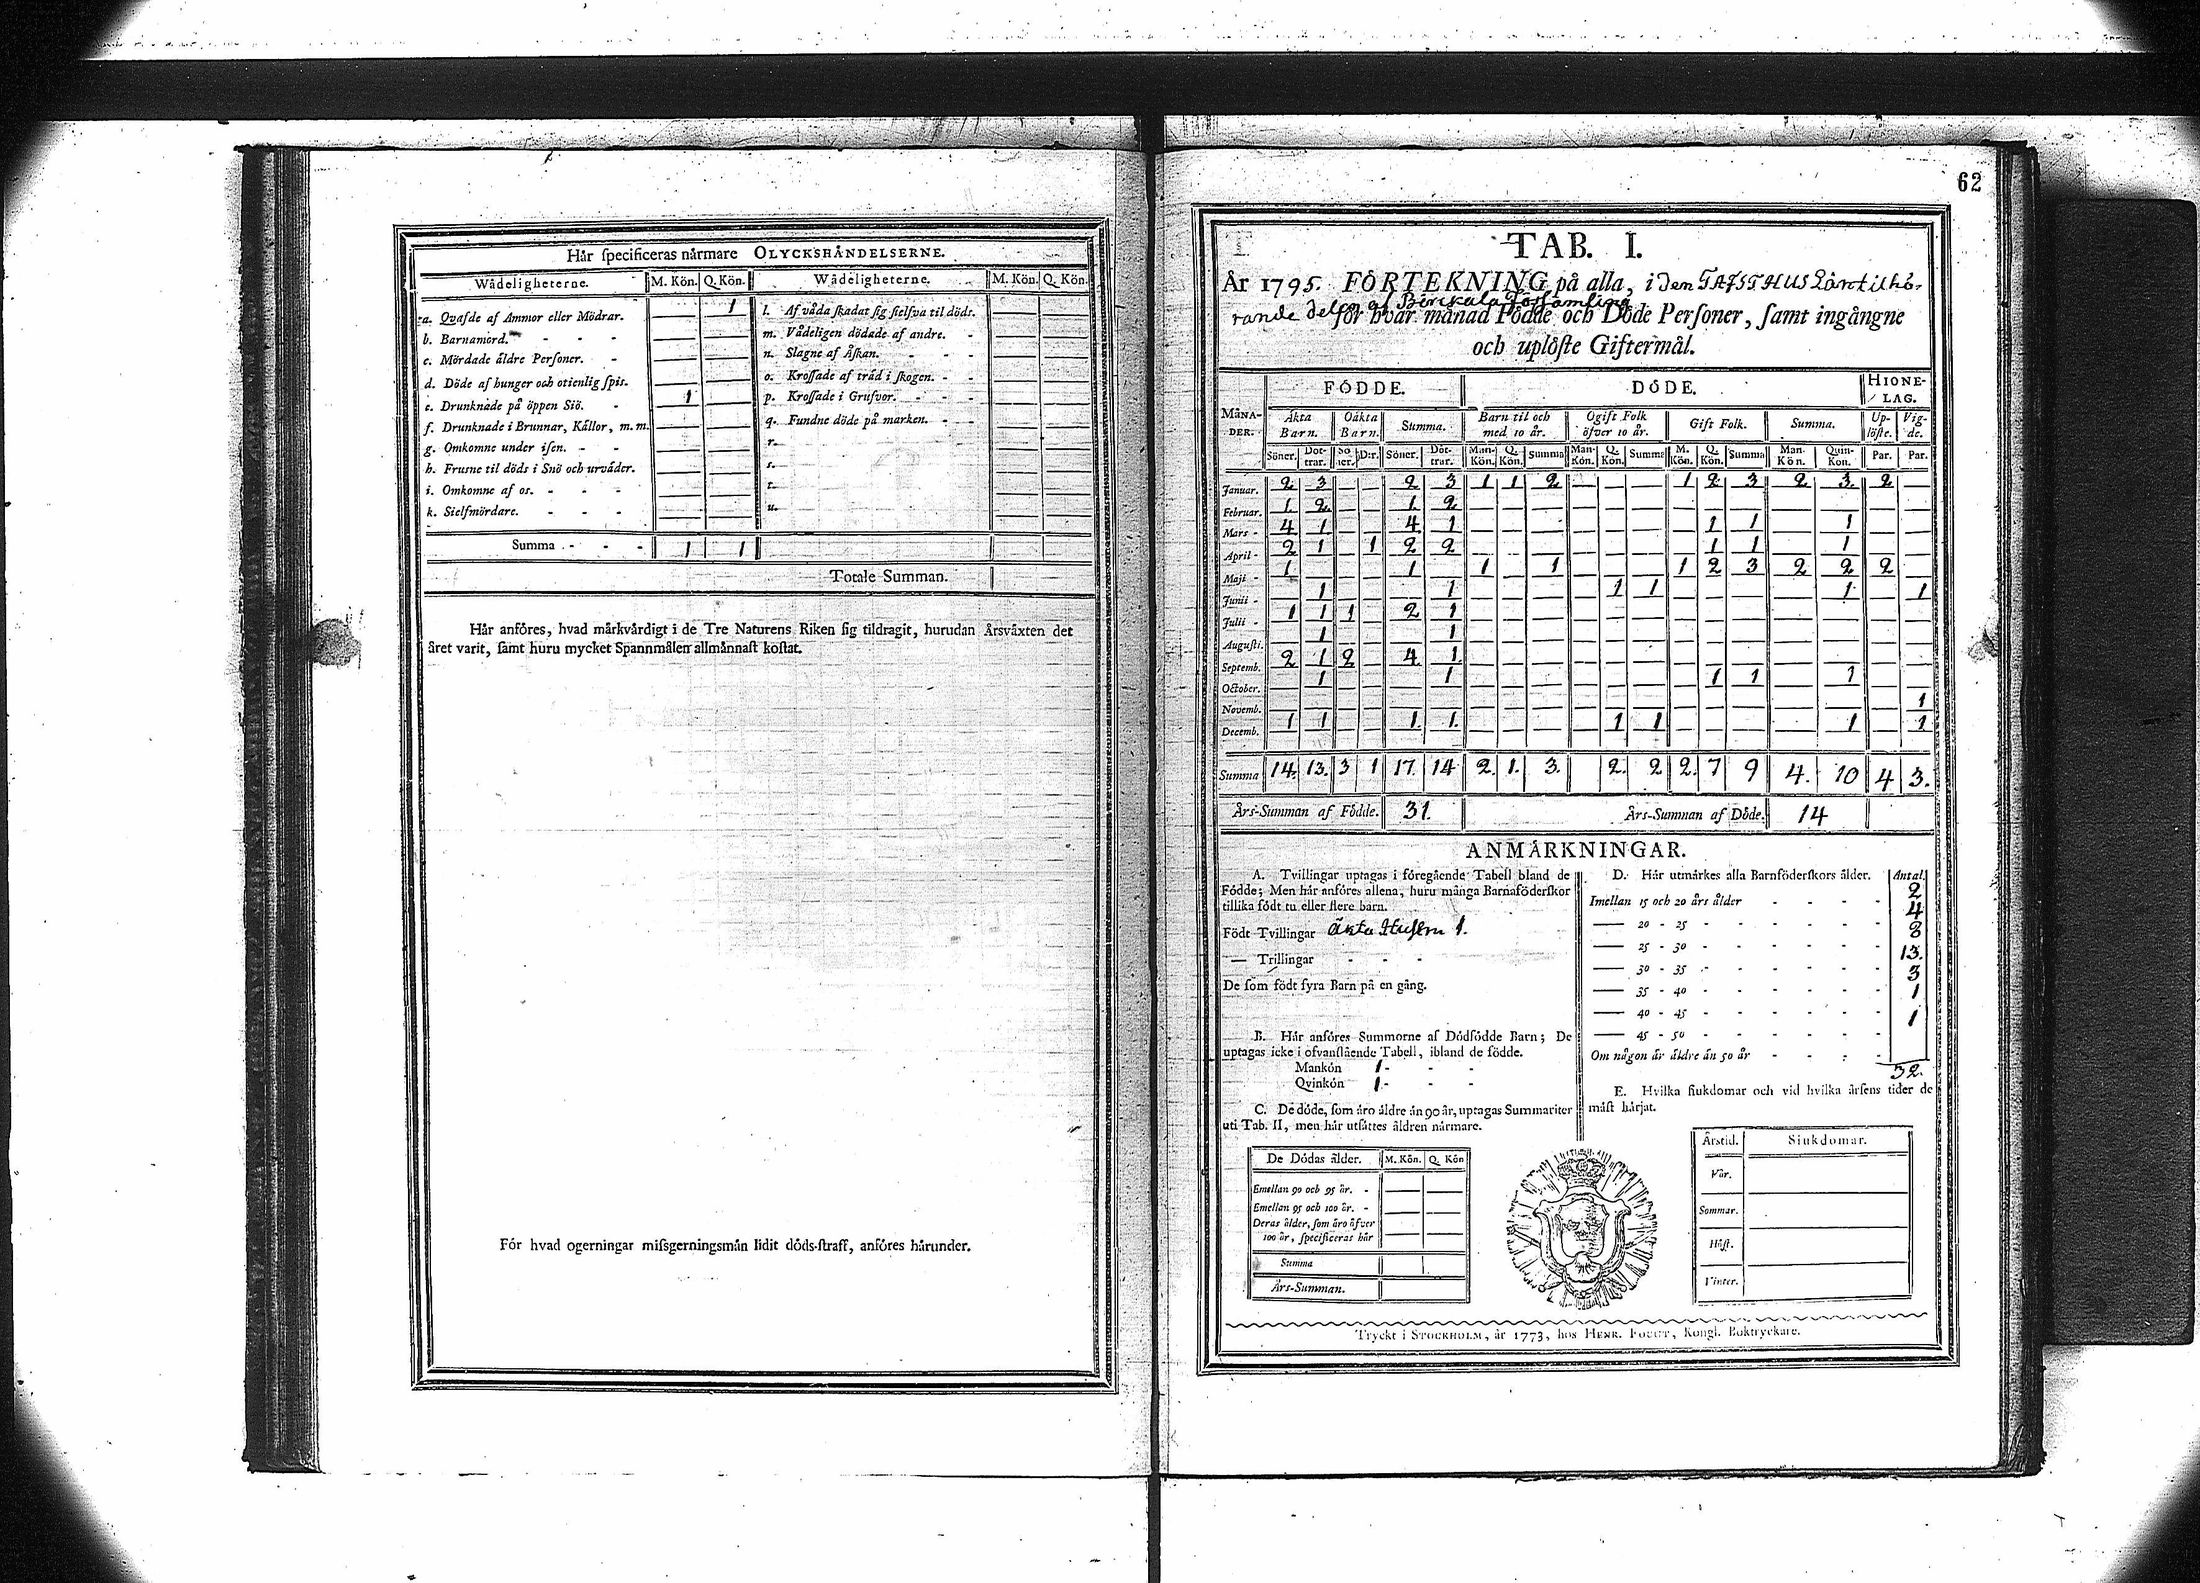 Här specificeras närmare OLYCKSHÄNDELSERNE.
Wådeligheterne. M. Kön. Q. Kön. Wådeligheterne. M. Kön. Q. Kön.
a. Qvafde af Ammor eller Mödrar. — 1 l. Af våda skadat sig sielfva til döds. — —
b. Barnamord. - - - — — m. Vådeligen dödade af andre. - — —
c. Mördade äldre Personer. - — — n. Slagne af Åskan. - - - — —
d. Döde af hunger och otienlig spis. — — o. Krossade af träd i skogen. - - — —
e. Drunknade på öppen Siö. - 1 — p. Krossade i Grufvor. - - - — —
f. Drunknade i Brunnar, Källor, m. m. — — q. Fundne döde på marken. - - — —
g. Omkomne under isen. - - — — r. — —
h. Frusne til döds i Snö och urväder. — — s. — —
i. Omkomne af os. - - - — — t. — —
k. Sielfmördare. - - - — — u. — —
Summa - - - 1 1
Totale Summan.
Här anföres, hvad märkvärdigt i de Tre Naturens Riken sig tildragit, hurudan Årsväxten det
året varit, samt huru mycket Spannmålen allmännast kostat.
För hvad ogerningar missgerningsmän lidit döds-straff, anföres härunder.
62
TAB. I.
År 1795. FÖRTEKNING på alla, i den TAFSTHUS Län tilhö-
rande delen af Birckala Församling
för hvar månad Födde och Döde Personer, samt ingångne
och uplöste Giftermål.
MÅNA-DER. FÖDDE. DÖDE. HIONE-LAG.
Äkta Barn. Oäkta Barn. Summa. Barn til och med 10 år. Ogift Folk öfver 10 år. Gift Folk. Summa. Up-löste. Vig-de.
Söner. Döt-trar. Sö-ner. D:r. Söner. Döt-trar. Man-Kön. Q. Kön. Summa Man-Kön. Q. Kön. Summa M. Kön. Q. Kön. Summa Man-Kön. Quin-Kon. Par. Par.
Januar. 2 3 — — 2 3 1 1 2 — — — 1 2 3 2 3 2 —
Februar. 1 2 — — 1 2 — — — — — — — — — — — — —
Mars - 4 1 — — 4 1 — — — — — — — 1 1 — 1 — —
April - 2 1 — 1 2 2 — — — — — — — 1 1 — 1 — —
Maji - 1 — — — 1 — 1 — 1 — — — 1 2 3 2 2 2 —
Junii - — 1 — — — 1 — — — — 1 1 — — — — 1 — 1
Julii - 1 1 1 — 2 1 — — — — — — — — — — — — —
Augusti. — 1 — — — 1 — — — — — — — — — — — — —
Septemb. 2 1 2 — 4 1 — — — — — — — — — — — — —
October. — 1 — — — 1 — — — — — — — 1 1 — 1 — —
Novemb. — — — — — — — — — — — — — — — — — — 1
Decemb. 1 1 — — 1 1 — — — — 1 1 — — — — 1 — 1
Summa 14. 13. 3 1 17. 14 2. 1. 3. 2. 2 2. 7 9 4. 10 4 3.
Års-Summan af Födde. 31. Års-Summan af Döde. 14
ANMÄRKNINGAR.
A. Tvillingar uptagas i föregående Tabell bland de
Födde; Men här anföres allena, huru många Barnaföderskor
tillika födt tu eller flere barn.
Födt Tvillingar Äkta Hustru 1.
— Trillingar - - -
De som födt fyra Barn på en gång.
B. Här anföres Summorne af Dödfödde Barn; De
uptagas icke i ofvanstående Tabell, ibland de födde.
Mankön 1 - - -
Qvinkön 1 - - -
C. De döde, som äro äldre än 90 år, uptagas Summariter
uti Tab. II, men här utsättes åldren närmare.
De Dödas ålder. M. Kön. Q. Kön
Emellan 90 och 95 år. - — —
Emellan 95 och 100 år. - — —
Deras ålder, som äro öfver
100 år, specificeras här — —
Summa
Års-Summan.
D. Här utmärkes alla Barnföderskors ålder. Antal.
Imellan 15 och 20 års ålder - - - - 2
— 20 - 25 - - - - - 4
— 25 - 30 - - - - - 8
— 30 - 35 - - - - - 13.
— 35 - 40 - - - - - 3
— 40 - 45 - - - - - 1
— 45 - 50 - - - - - 1
Om någon är äldre än 50 år - - - -
32.
E. Hvilka siukdomar och vid hvilka årsens tider de
mäst härjat.
Årstid. Siukdomar.
Vår.
Sommar.
Höst.
Vinter.
Tryckt i STOCKHOLM, år 1773, hos HENR. FOUGT, Kongl. Boktryckare.